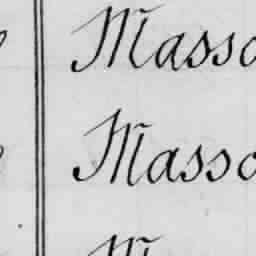 Masso
Masso